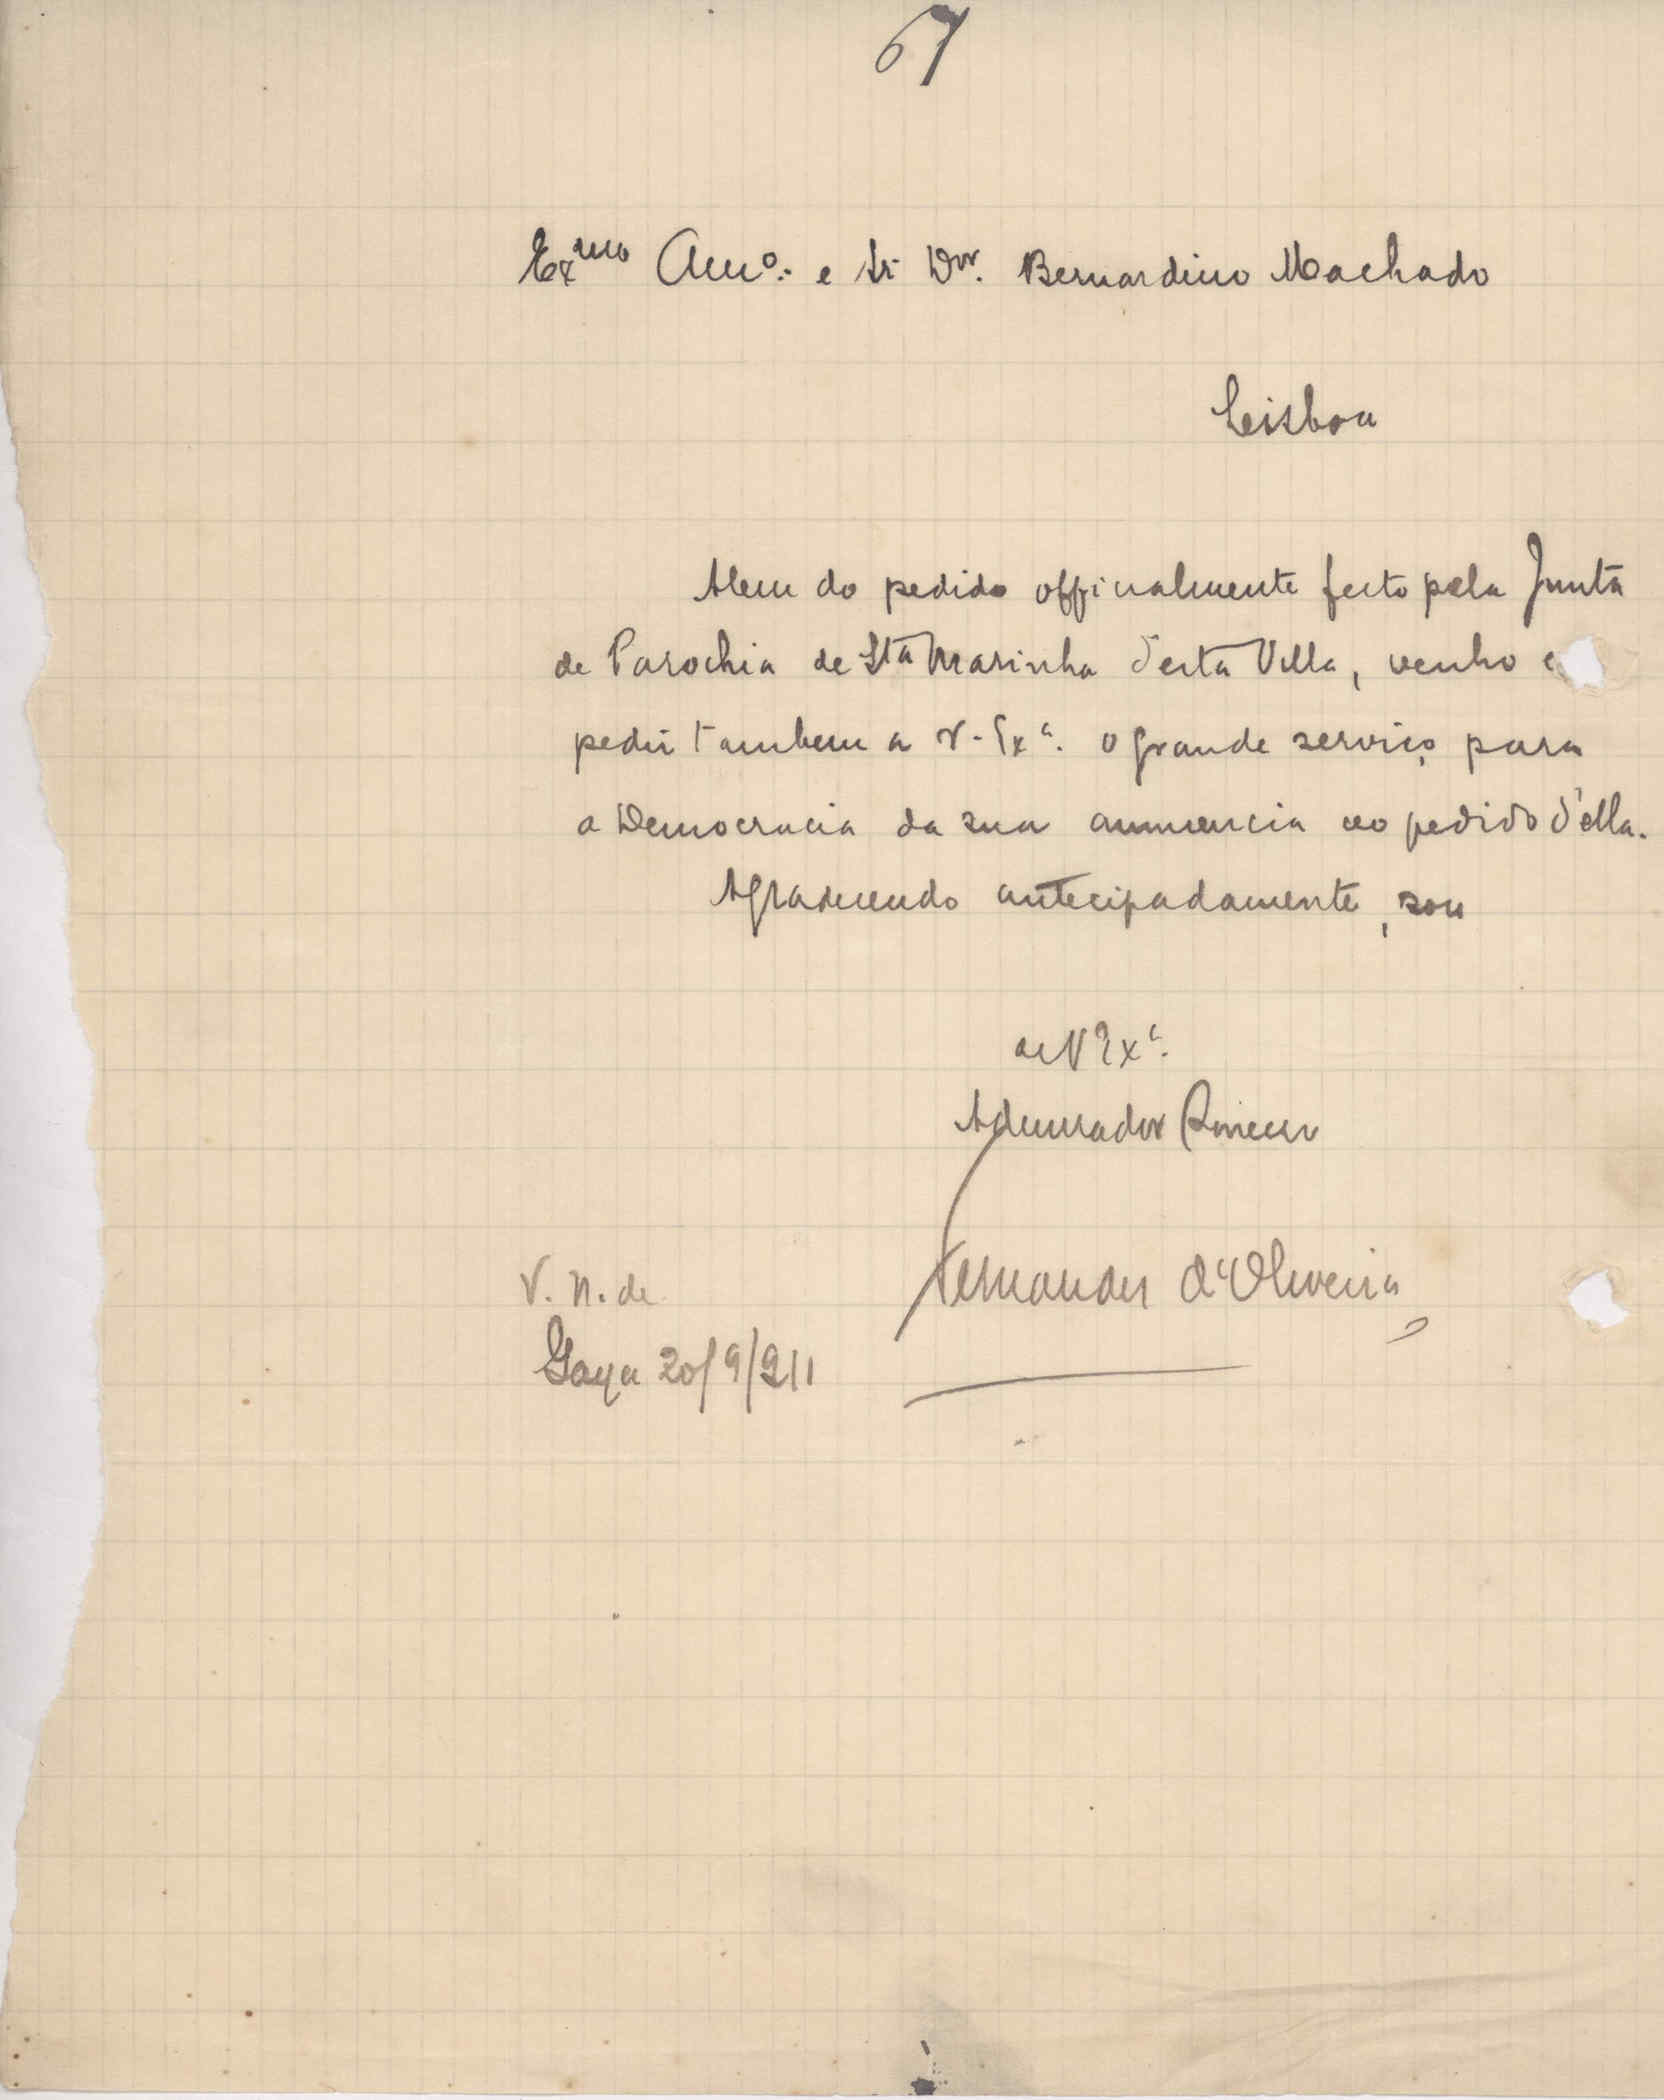 67
Exmo Amo. e Sr Dor. Bernardino Machado
Lisboa
Alem do pedido officialmente feito pela Junta
de Parochia de Sta Marinha d'esta Villa, venho
pedir tambem a V. Exa. o grande serviço para
a Democracia da sua annuencia ao pedido d'ella.
Agradecendo antecipadamente, sou
de V Exa.
Admirador Sincero
Fernandes d'Oliveira
V. N. de
Gaya 20/9/911